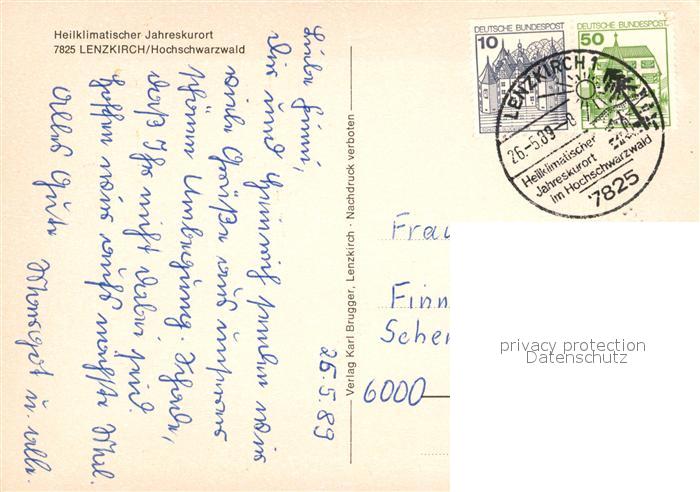 Heilklimatischer Jahreskurort
7825 LENZKIRCH/Hochschwarzwald
26.5.89
Dir und Heinrich senden wir
viele Grüße aus unserer
schönen Umgebung. Schade,
daß Ihr nicht dabei seid.
Hoffen wir auf's nächste Mal.
Alles Gute Margot u. alle.
Verlag Karl Brugger, Lenzkirch · Nachdruck verboten
DEUTSCHE BUNDESPOST
10
DEUTSCHE BUNDESPOST
50
LENZKIRCH 1
26.-5.89
Heilklimatischer
Jahreskurort
im Hochschwarzwald
7825
Frau
Finn
Schen
6000
privacy protection
Datenschutz